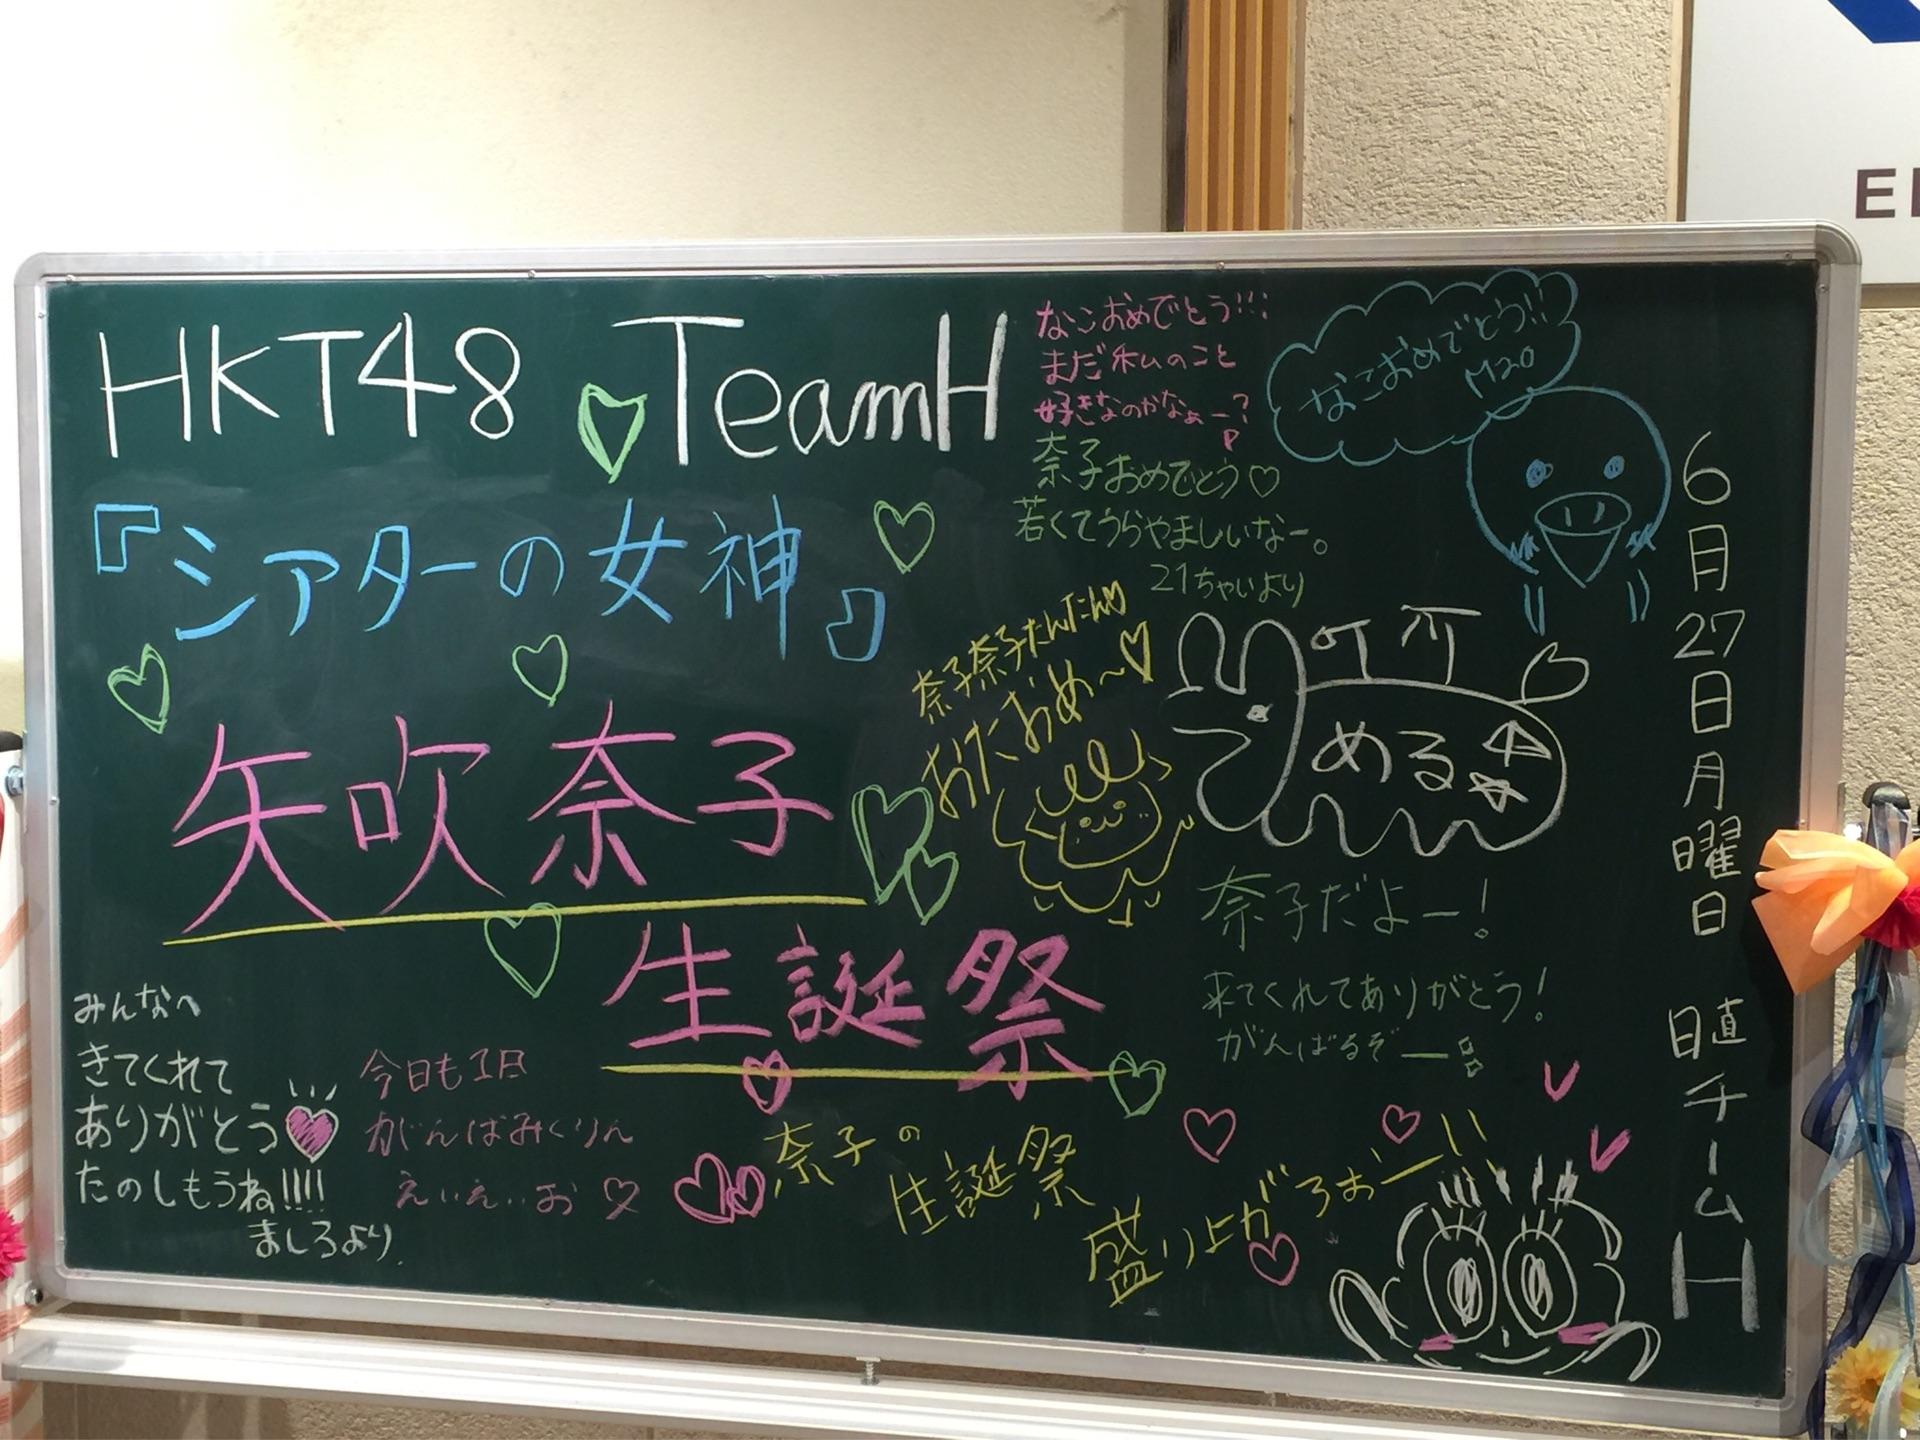 HKT48 TeamH
『シアターの女神』
矢吹奈子
生誕祭
なこおめでとう!!!
まだ私のこと
好きなのかなぁー?
奈子おめでとう♡
若くてうらやましいなー。
21ちゃいより
なこおめでとう!!
M20
奈子奈子たんたん♡
おたおめ〜♡
める
奈子だよー!
来てくれてありがとう!
がんばるぞー
みんなへ
きてくれて
ありがとう
たのしもうね!!!!
ましろより
今日も1日
がんばみくりん
えいえいお♡
奈子の
生誕祭
盛り上がろぉー!!
6月27日月曜日 日直 チームH